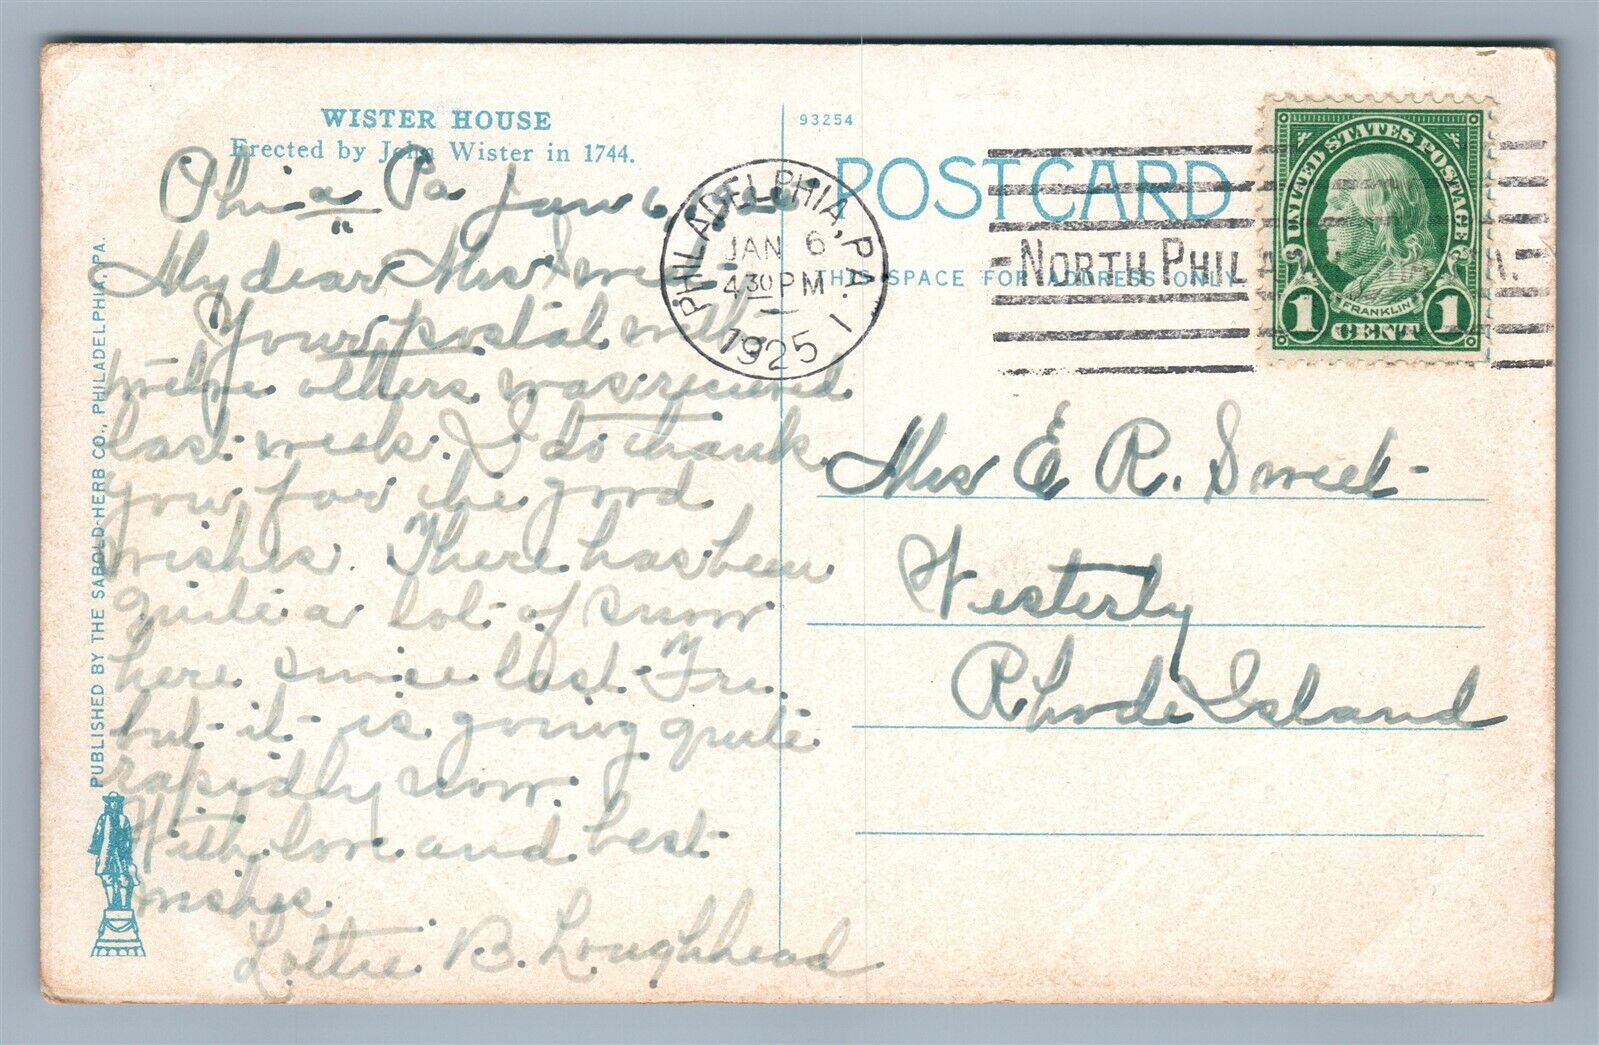 WISTER HOUSE
Erected by John Wister in 1744.
Phila Pa Jan 6
My dear Mrs Sweet
Your postal with
twelve others was received
last week. I do thank
you for the good
wishes. There has been
quite a lot of snow
here since last Fri.
but it is going quite
rapidly now.
With love and best
wishes
Lottie B. Loughhead
PUBLISHED BY THE SABOLD-HERB CO., PHILADELPHIA, PA.
93254
POST CARD
THIS SPACE FOR ADDRESS ONLY
PHILADELPHIA, PA.
JAN 6
4 30 PM
1925
1
NORTH PHIL
UNITED STATES POSTAGE
FRANKLIN
1 CENT 1
Mrs E R. Sweet
Westerly
Rhode Island